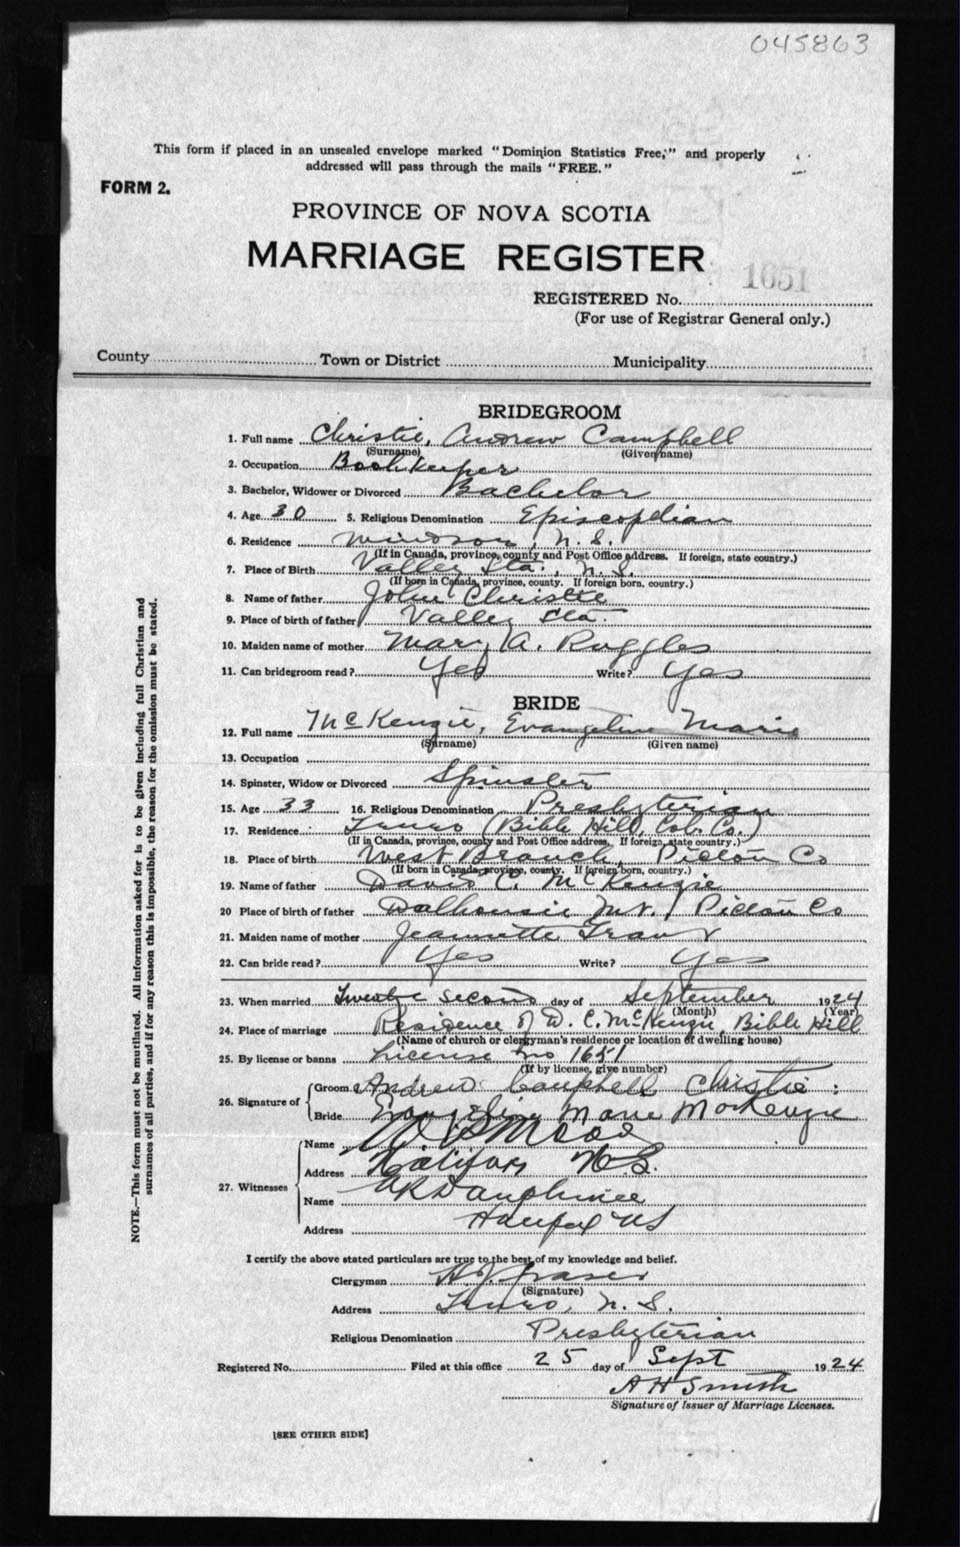 045863
This form if placed in an unsealed envelope marked "Dominion Statistics Free," and properly
addressed will pass through the mails "FREE."
FORM 2.
PROVINCE OF NOVA SCOTIA
MARRIAGE REGISTER
1651
REGISTERED No.
(For use of Registrar General only.)
County Town or District Municipality
BRIDEGROOM
1. Full name Christie, Andrew Campbell
(Surname) (Given name)
2. Occupation Bookkeeper
3. Bachelor, Widower or Divorced Bachelor
4. Age 30 5. Religious Denomination Episcoplian
6. Residence Windsor, N.S.
(If in Canada, province, county and Post Office address. If foreign, state country.)
7. Place of Birth Valley Sta., N.S.
(If born in Canada, province, county. If foreign born, country.)
8. Name of father John Christie
9. Place of birth of father Valley Sta.
10. Maiden name of mother Mary A. Ruggles
11. Can bridegroom read? Yes Write? Yes
BRIDE
12. Full name McKenzie, Evangeline Marie
(Surname) (Given name)
13. Occupation
14. Spinster, Widow or Divorced Spinster
15. Age 33 16. Religious Denomination Presbyterian
17. Residence Truro (Bible Hill, Col. Co.)
(If in Canada, province, county and Post Office address. If foreign, state country.)
18. Place of birth West Branch, Pictou Co
(If born in Canada, province, county. If foreign born, country.)
19. Name of father David C. McKenzie
20 Place of birth of father Dalhousie Mt. Pictou Co
21. Maiden name of mother Jeannette
22. Can bride read? Yes Write? Yes
23. When married Twenty second day of September 1924
(Month) (Year)
24. Place of marriage Residence of D. C. McKenzie, Bible Hill
(Name of church or clergyman's residence or location of dwelling house)
25. By license or banns License no 1651
(If by license, give number)
26. Signature of Groom Andrew Campbell Christie
Bride Evangeline Marie MacKenzie
27. Witnesses Name
Address Halifax N.S.
Name Dauphinee
Address Halifax NS
I certify the above stated particulars are true to the best of my knowledge and belief.
Clergyman Fraser
(Signature)
Address Truro, N.S.
Religious Denomination Presbyterian
Registered No. Filed at this office 25 day of Sept 1924
A H Smith
Signature of Issuer of Marriage Licenses.
[SEE OTHER SIDE]
NOTE.—This form must not be mutilated. All information asked for is to be given including full Christian and
surnames of all parties, and if for any reason this is impossible, the reason for the omission must be stated.